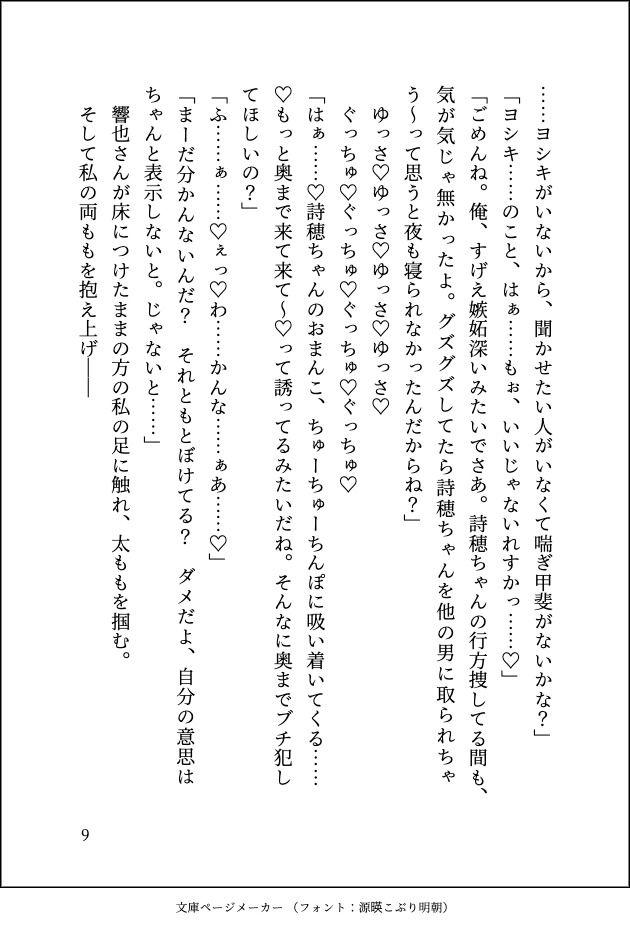 ……ヨシキがいないから、聞かせたい人がいなくて喘ぎ甲斐がないかな？」
「ヨシキ……のこと、はぁ……もぉ、いいじゃないれすかっ……♡」
「ごめんね。俺、すげえ嫉妬深いみたいでさあ。詩穂ちゃんの行方捜してる間も、
気が気じゃ無かったよ。グズグズしてたら詩穂ちゃんを他の男に取られちゃ
う～って思うと夜も寝られなかったんだからね？」
ゆっさ♡ゆっさ♡ゆっさ♡ゆっさ♡
ぐっちゅ♡ぐっちゅ♡ぐっちゅ♡ぐっちゅ♡
「はぁ……♡詩穂ちゃんのおまんこ、ちゅーちゅーちんぽに吸い着いてくる……
♡もっと奥まで来て来て～♡って誘ってるみたいだね。そんなに奥までブチ犯し
てほしいの？」
「ふ……ぁ……♡ぇっ♡わ……かんな……ぁあ……♡」
「まーだ分かんないんだ？　それともとぼけてる？　ダメだよ、自分の意思は
ちゃんと表示しないと。じゃないと……」
響也さんが床につけたままの方の私の足に触れ、太ももを掴む。
そして私の両ももを抱え上げ――
9
文庫ページメーカー （フォント：源暎こぶり明朝）